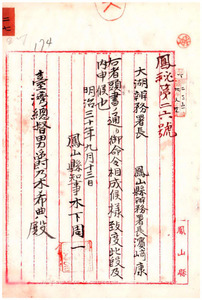 174
鳳秘第二六號
大湖辨務署長
鳳山縣辨務署長濱﨑康
右者頭書ノ通リ御命令相成候様致度此段及
内申候也
明治三十年九月十三日
鳳山縣知事木下周一
臺灣總督男爵乃木希典殿
鳳山縣